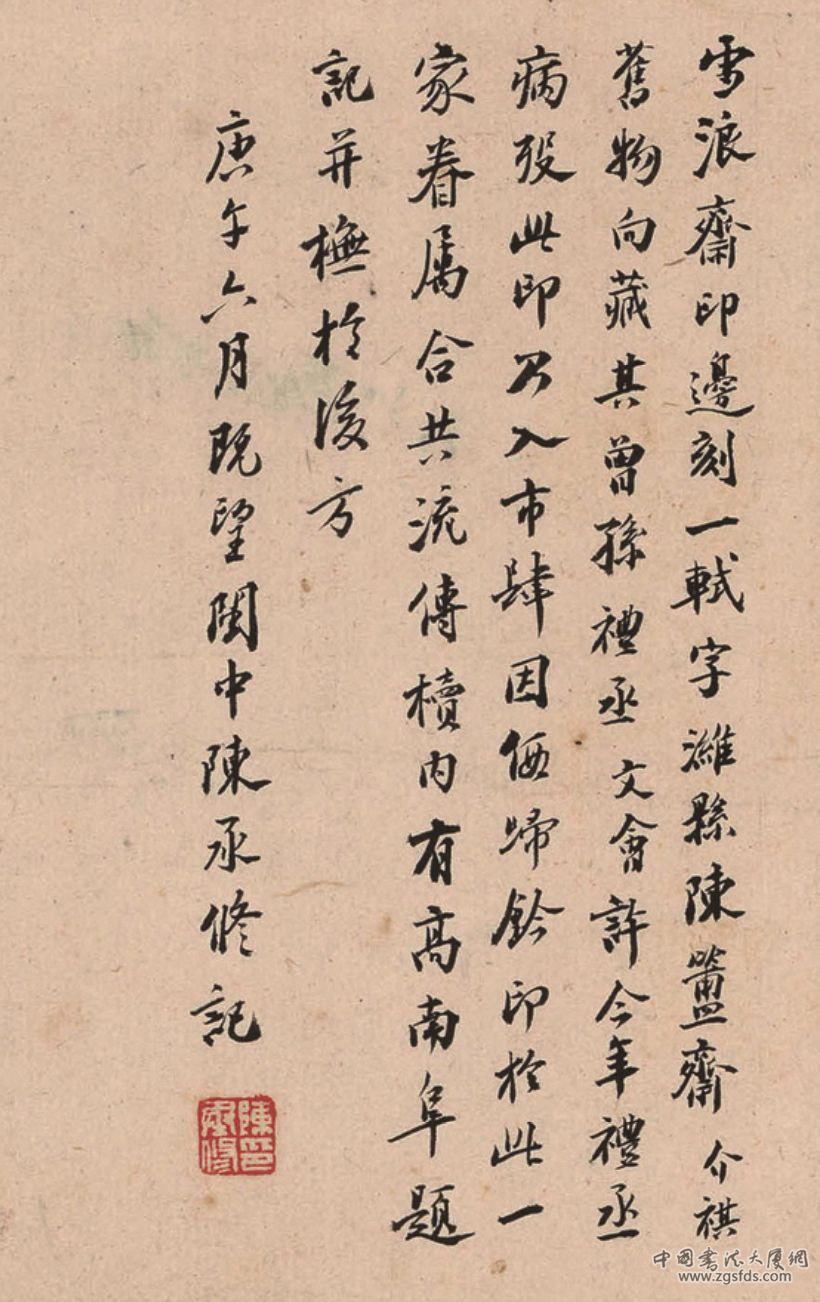 雪浪齋印邊刻一軾字濰縣陳簠齋介祺
舊物向藏其曾孫禮丞文會許今年禮丞
病歿此印乃入市肆因価歸鈐印於此一
家眷属合共流傳櫝内有髙南阜題
記并橅於後方
庚午六月既望閩中陳承修記
陳承修印
中國書法大廈網
www.zgsfds.com